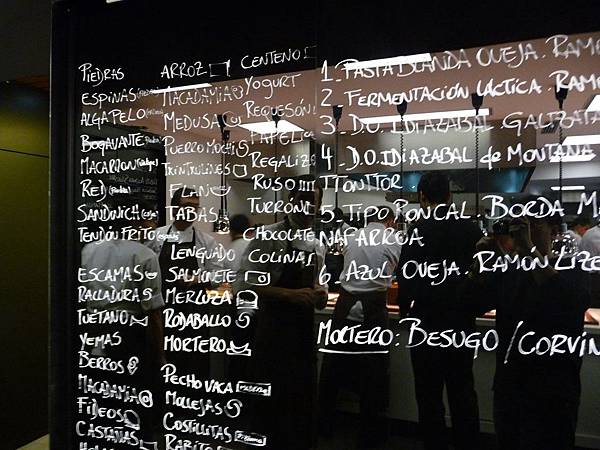 PIEDRAS
ESPINAS
ALGA PELO
BOGAVANTE
MACARRON
RED
SANDWICH
TENDÓN FRITO
ESCAMAS
RALLADURA
TUÉTANO
YEMAS
BERROS
MACADAMIA
FIDEOS
CASTAÑAS
ARROZ
MACADAMIA
MEDUSA
PUERRO MOCHI
TRINTXULINES
FLAN
TABAS
LENGUADO
SALMONETE
MERLUZA
RODABALLO
MORTERO
PECHO VACA
MOLLEJAS
COSTILLITAS
RABITO
CENTENO
YOGURT
REQUESÓN
PAPEL
REGALIZ
RUSO
TURRÓN
CHOCOLATE
COLINAS
1. PASTA BLANDA OVEJA. RAM
2 FERMENTACIÓN LÁCTICA. RAM
3. D.O. IDIAZABAL
4. D.O. IDIAZABAL de MONTAÑA
5. TIPO RONCAL. BORDA
NAFARROA
6. AZUL OVEJA. RAMÓN LIZE
MORTERO: BESUGO / CORVIN